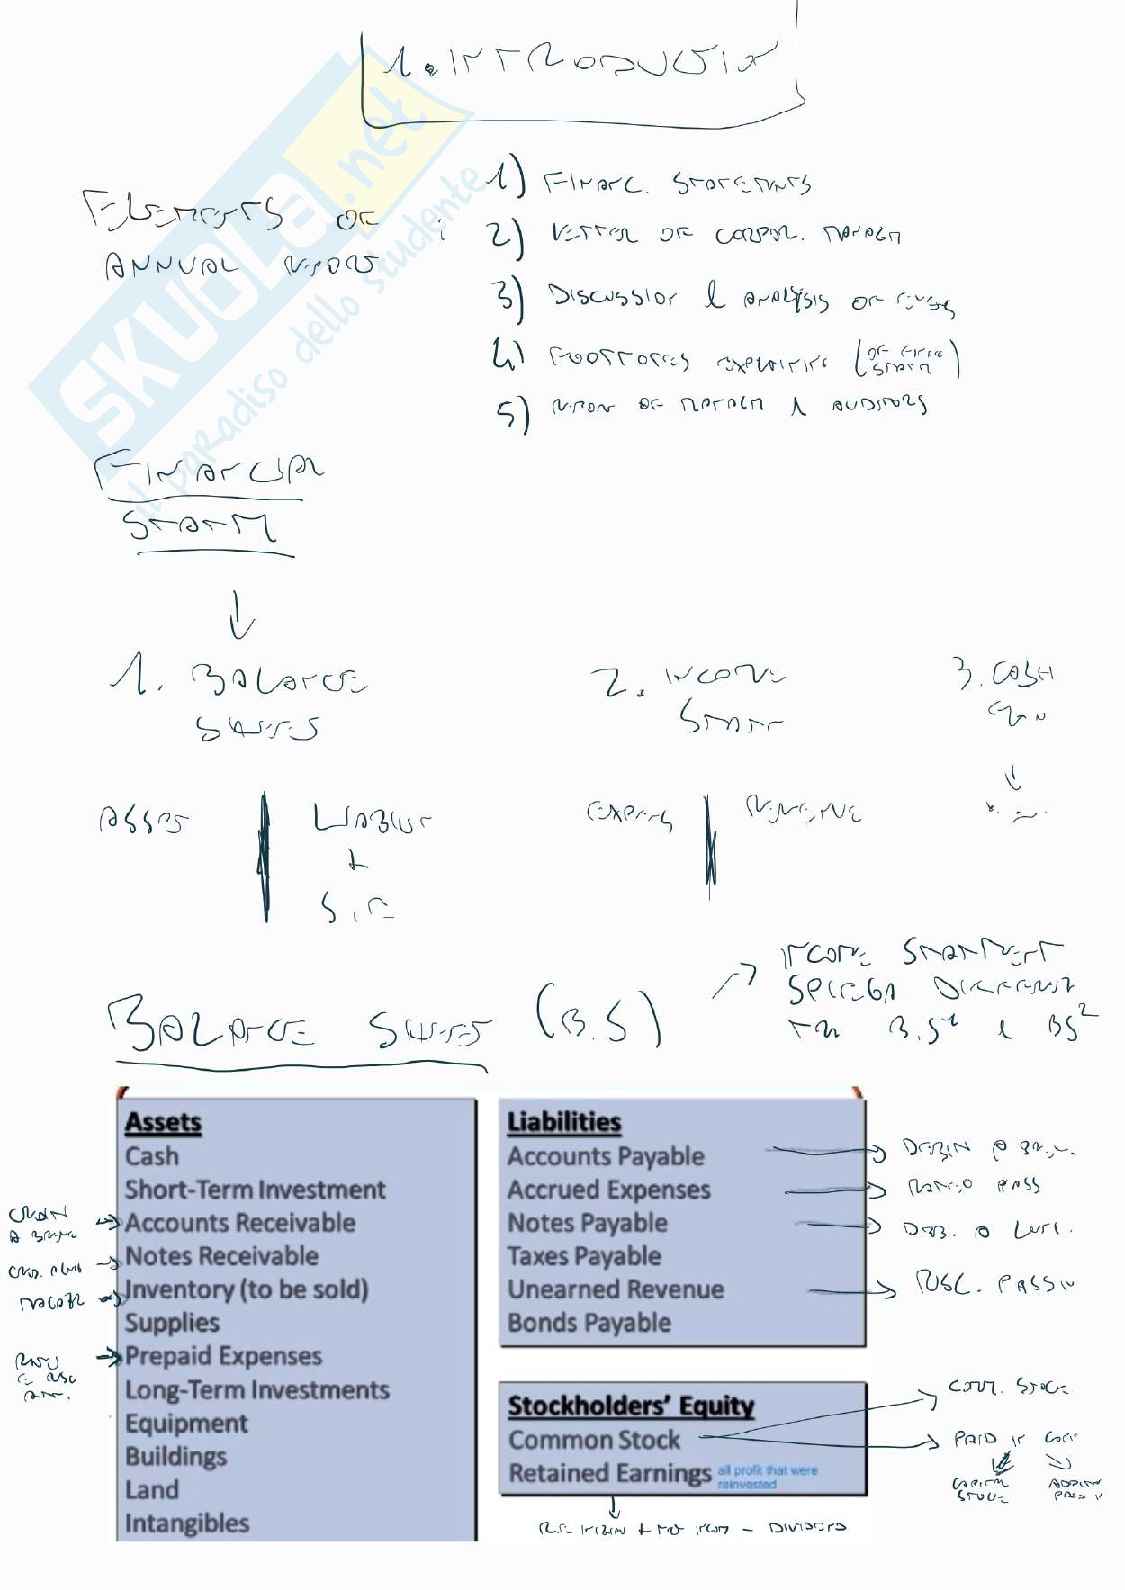 1. INTRODUCTION
ELEMENTS OF
ANNUAL REPORT
1) FINANC. STATEMENTS
2) LETTER OF CORPOR. MANAGEM
3) DISCUSSION & ANALYSIS OF
4) FOOTNOTES EXPLAINING (OF FINAN STATEM)
5) REPORT OF MANAGEM & AUDITORS
SKUOLA.net
il paradiso dello studente
FINANCIAL
STATEM
1. BALANCE
SHEETS
2. INCOME
STATEM
3. CASH
FLOW
ASSETS
LIABILIT
+
S.E
EXPENS
REVENUE
INCOME STATEMENT
SPIEGA DIFFERENZ
TRA B.S1 & BS2
BALANCE SHEETS (B.S)
Assets
Cash
Short-Term Investment
Accounts Receivable
Notes Receivable
Inventory (to be sold)
Supplies
Prepaid Expenses
Long-Term Investments
Equipment
Buildings
Land
Intangibles
CREDITI
A BREVE
RATEI
E RISC
ATT.
Liabilities
Accounts Payable
Accrued Expenses
Notes Payable
Taxes Payable
Unearned Revenue
Bonds Payable
DEBITI A BREV.
RATEO PASS
DEB. A LUN.
RISC. PASSIV
Stockholders' Equity
Common Stock
Retained Earnings all profit that were
reinvested
COMM. STOCK
PAID IN
CAPITAL
STOCK
ADDITION
PAID IN
- DIVIDENDS